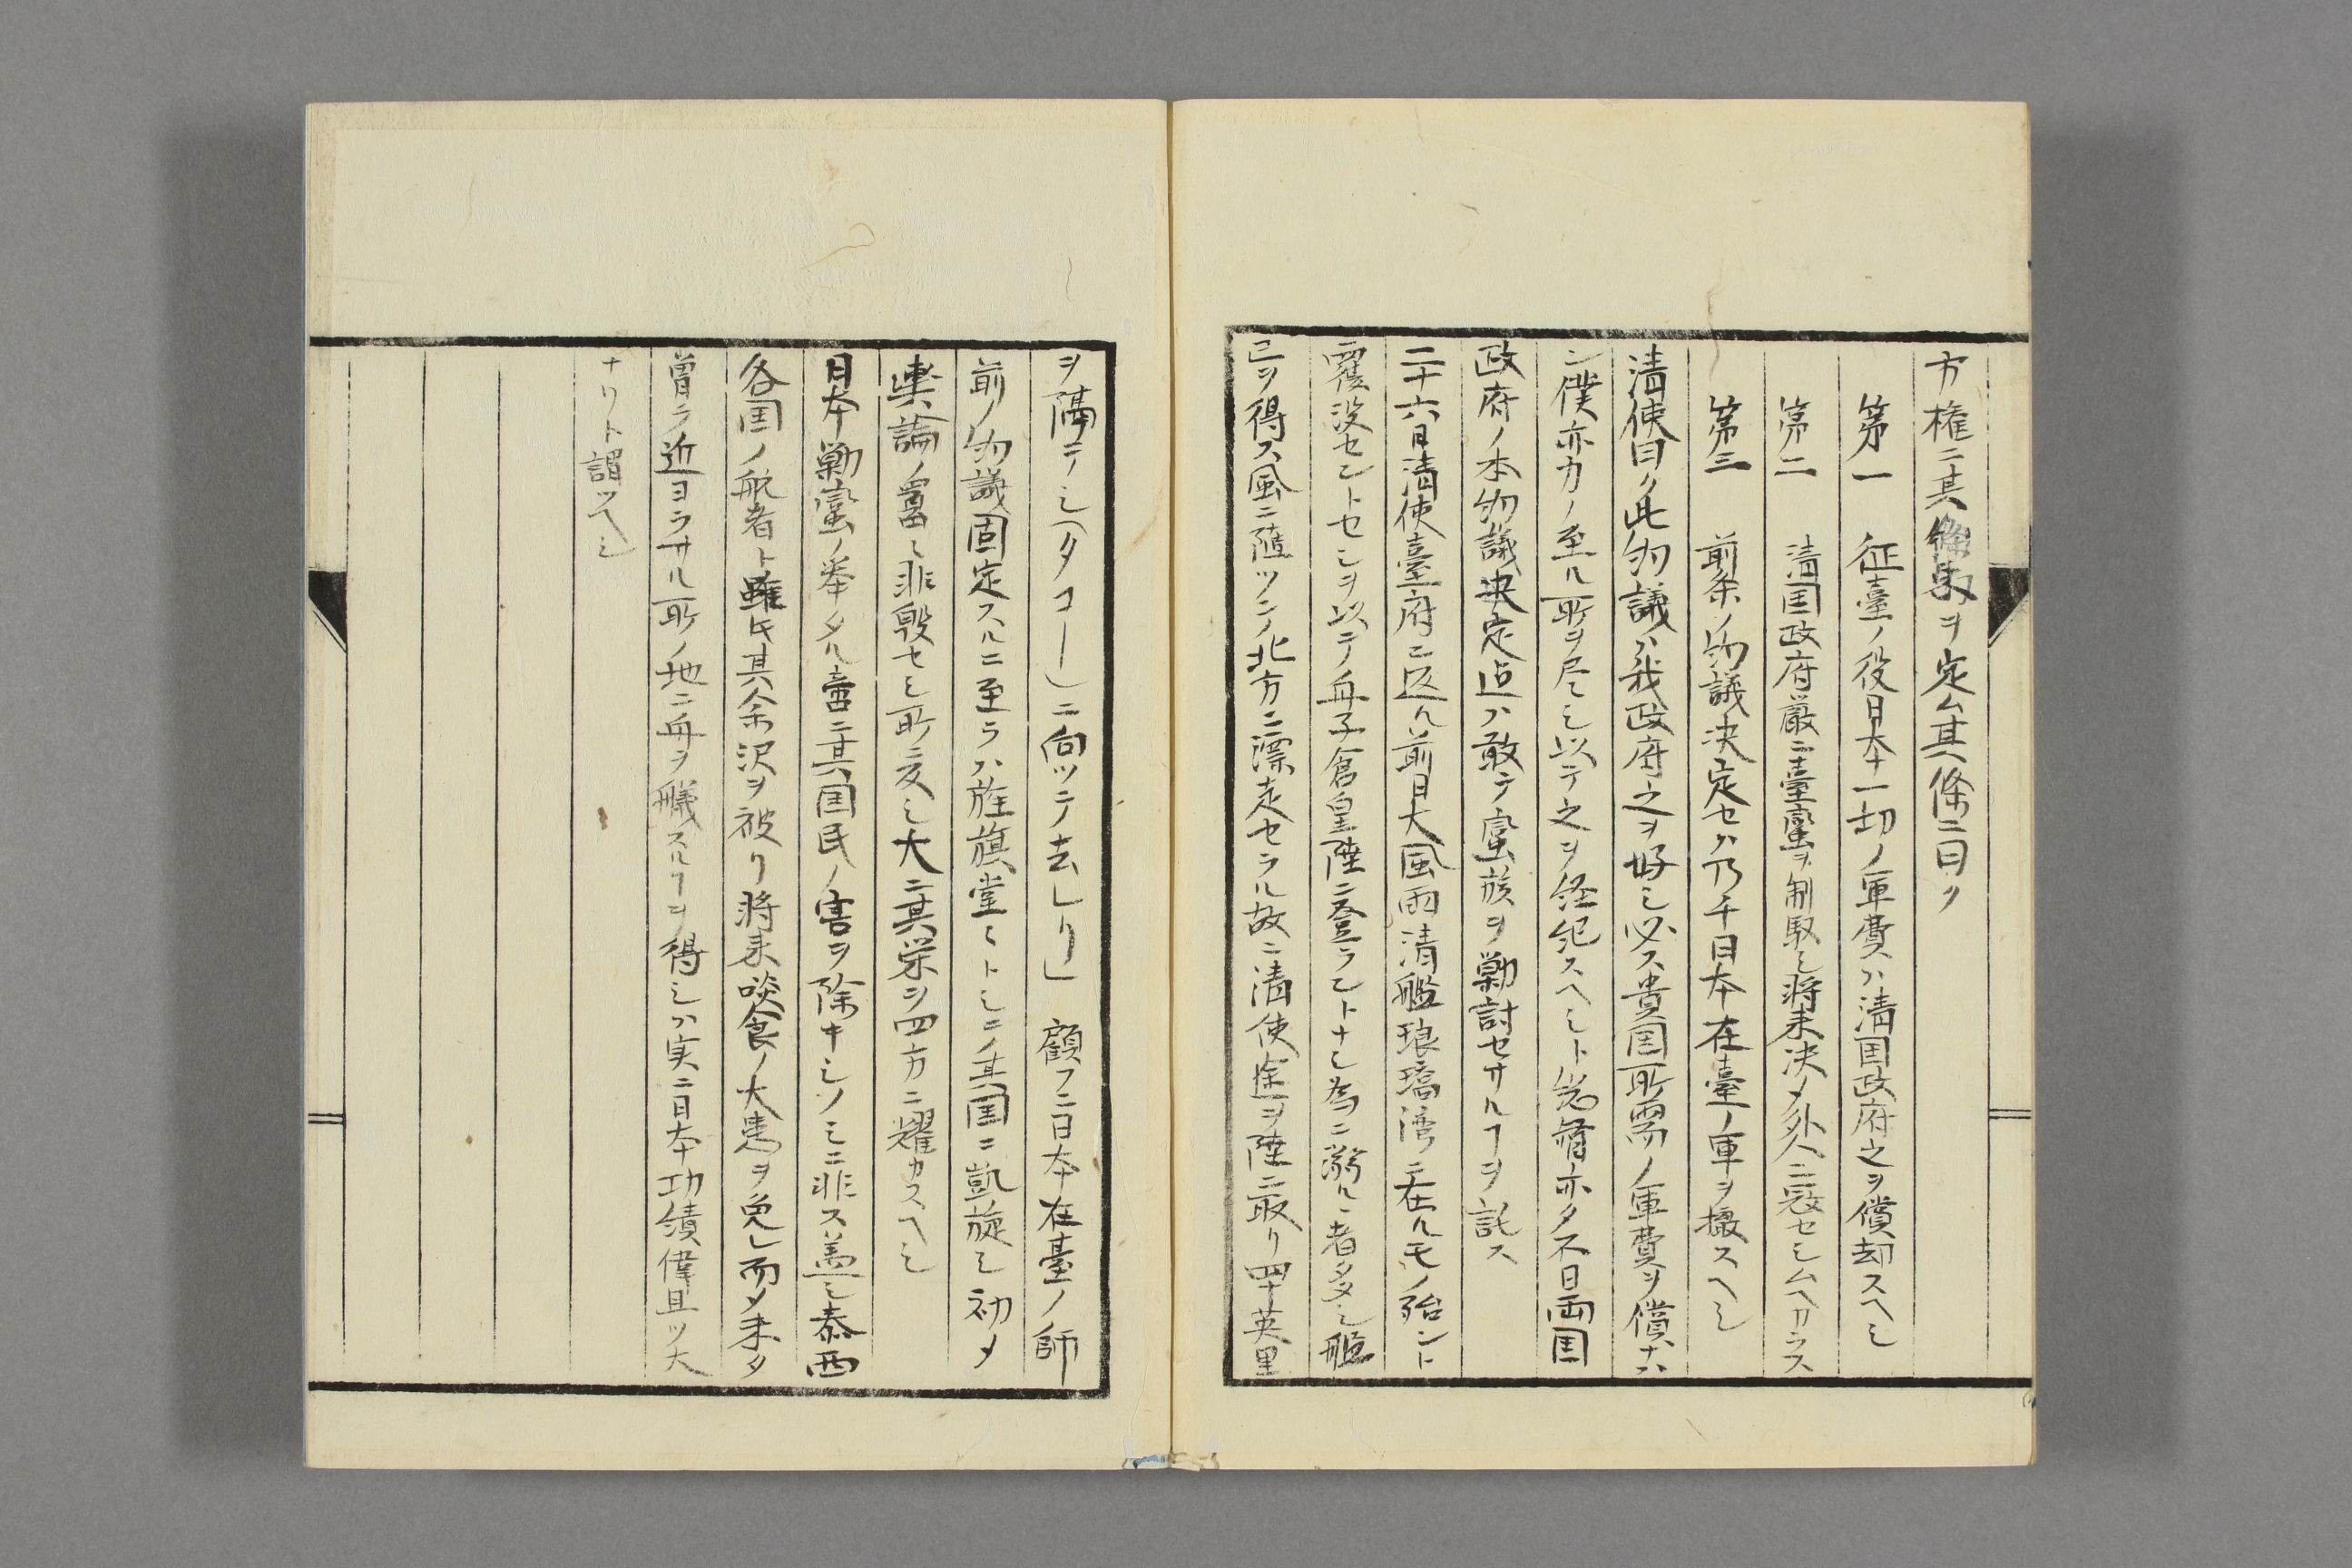 方権ニ其條款ヲ定ム其條ニ曰ク
第一 征臺ノ役日本一切ノ軍費ハ清国政府之ヲ償却スヘシ
第二 清国政府厳ニ臺蛮ヲ制馭シ将来決メ外人ニ寇セシムヘカラス
第三 前条ノ約議決定セハ乃チ日本在臺ノ軍ヲ撤スヘシ
清使曰ク此約議ハ我政府之ヲ好ミ必ス貴国所需ノ軍費ヲ償ナハ
ン僕亦力ノ至ル所ヲ尽シ以テ之ヲ経紀スヘシト总督亦タ不日両国
政府ノ本約議決定迠ハ敢テ蛮族ヲ勦討セサルヿヲ託ス
二十六日清使臺府ニ返ル前日大風雨清艦琅璚湾ニ在ルモノ殆ント
覆没セントセシヲ以テ舟子倉皇陸ニ登ラントナシ為ニ溺ルヽ者多シ艦
已ヲ得ス風ニ随ツテ北方ニ漂走セラル故ニ清使途ヲ陸ニ取リ四十英里
ヲ隔テシ(タコー)ニ向ツテ去レリ」 顧フニ日本在臺ノ師
前ノ約議固定スルニ至ラハ旌旗堂〻トシテ其国ニ凱旋シ初メ
輿論ノ囂〻非毀セシ所ニ反シ大ニ其栄ヲ四方ニ耀カスヘシ
日本勦蛮ノ挙タル啻ニ其国民ノ害ヲ除キシノミニ非ス盖シ泰西
各国ノ航者ト雖𪜈其余沢ヲ被リ将来啖食ノ大患ヲ免レ而メ未タ
曽テ近ヨラサル所ノ地ニ舟ヲ艤スルヿヲ得シハ実ニ日本功績偉且ツ大
ナリト謂ツヘシ